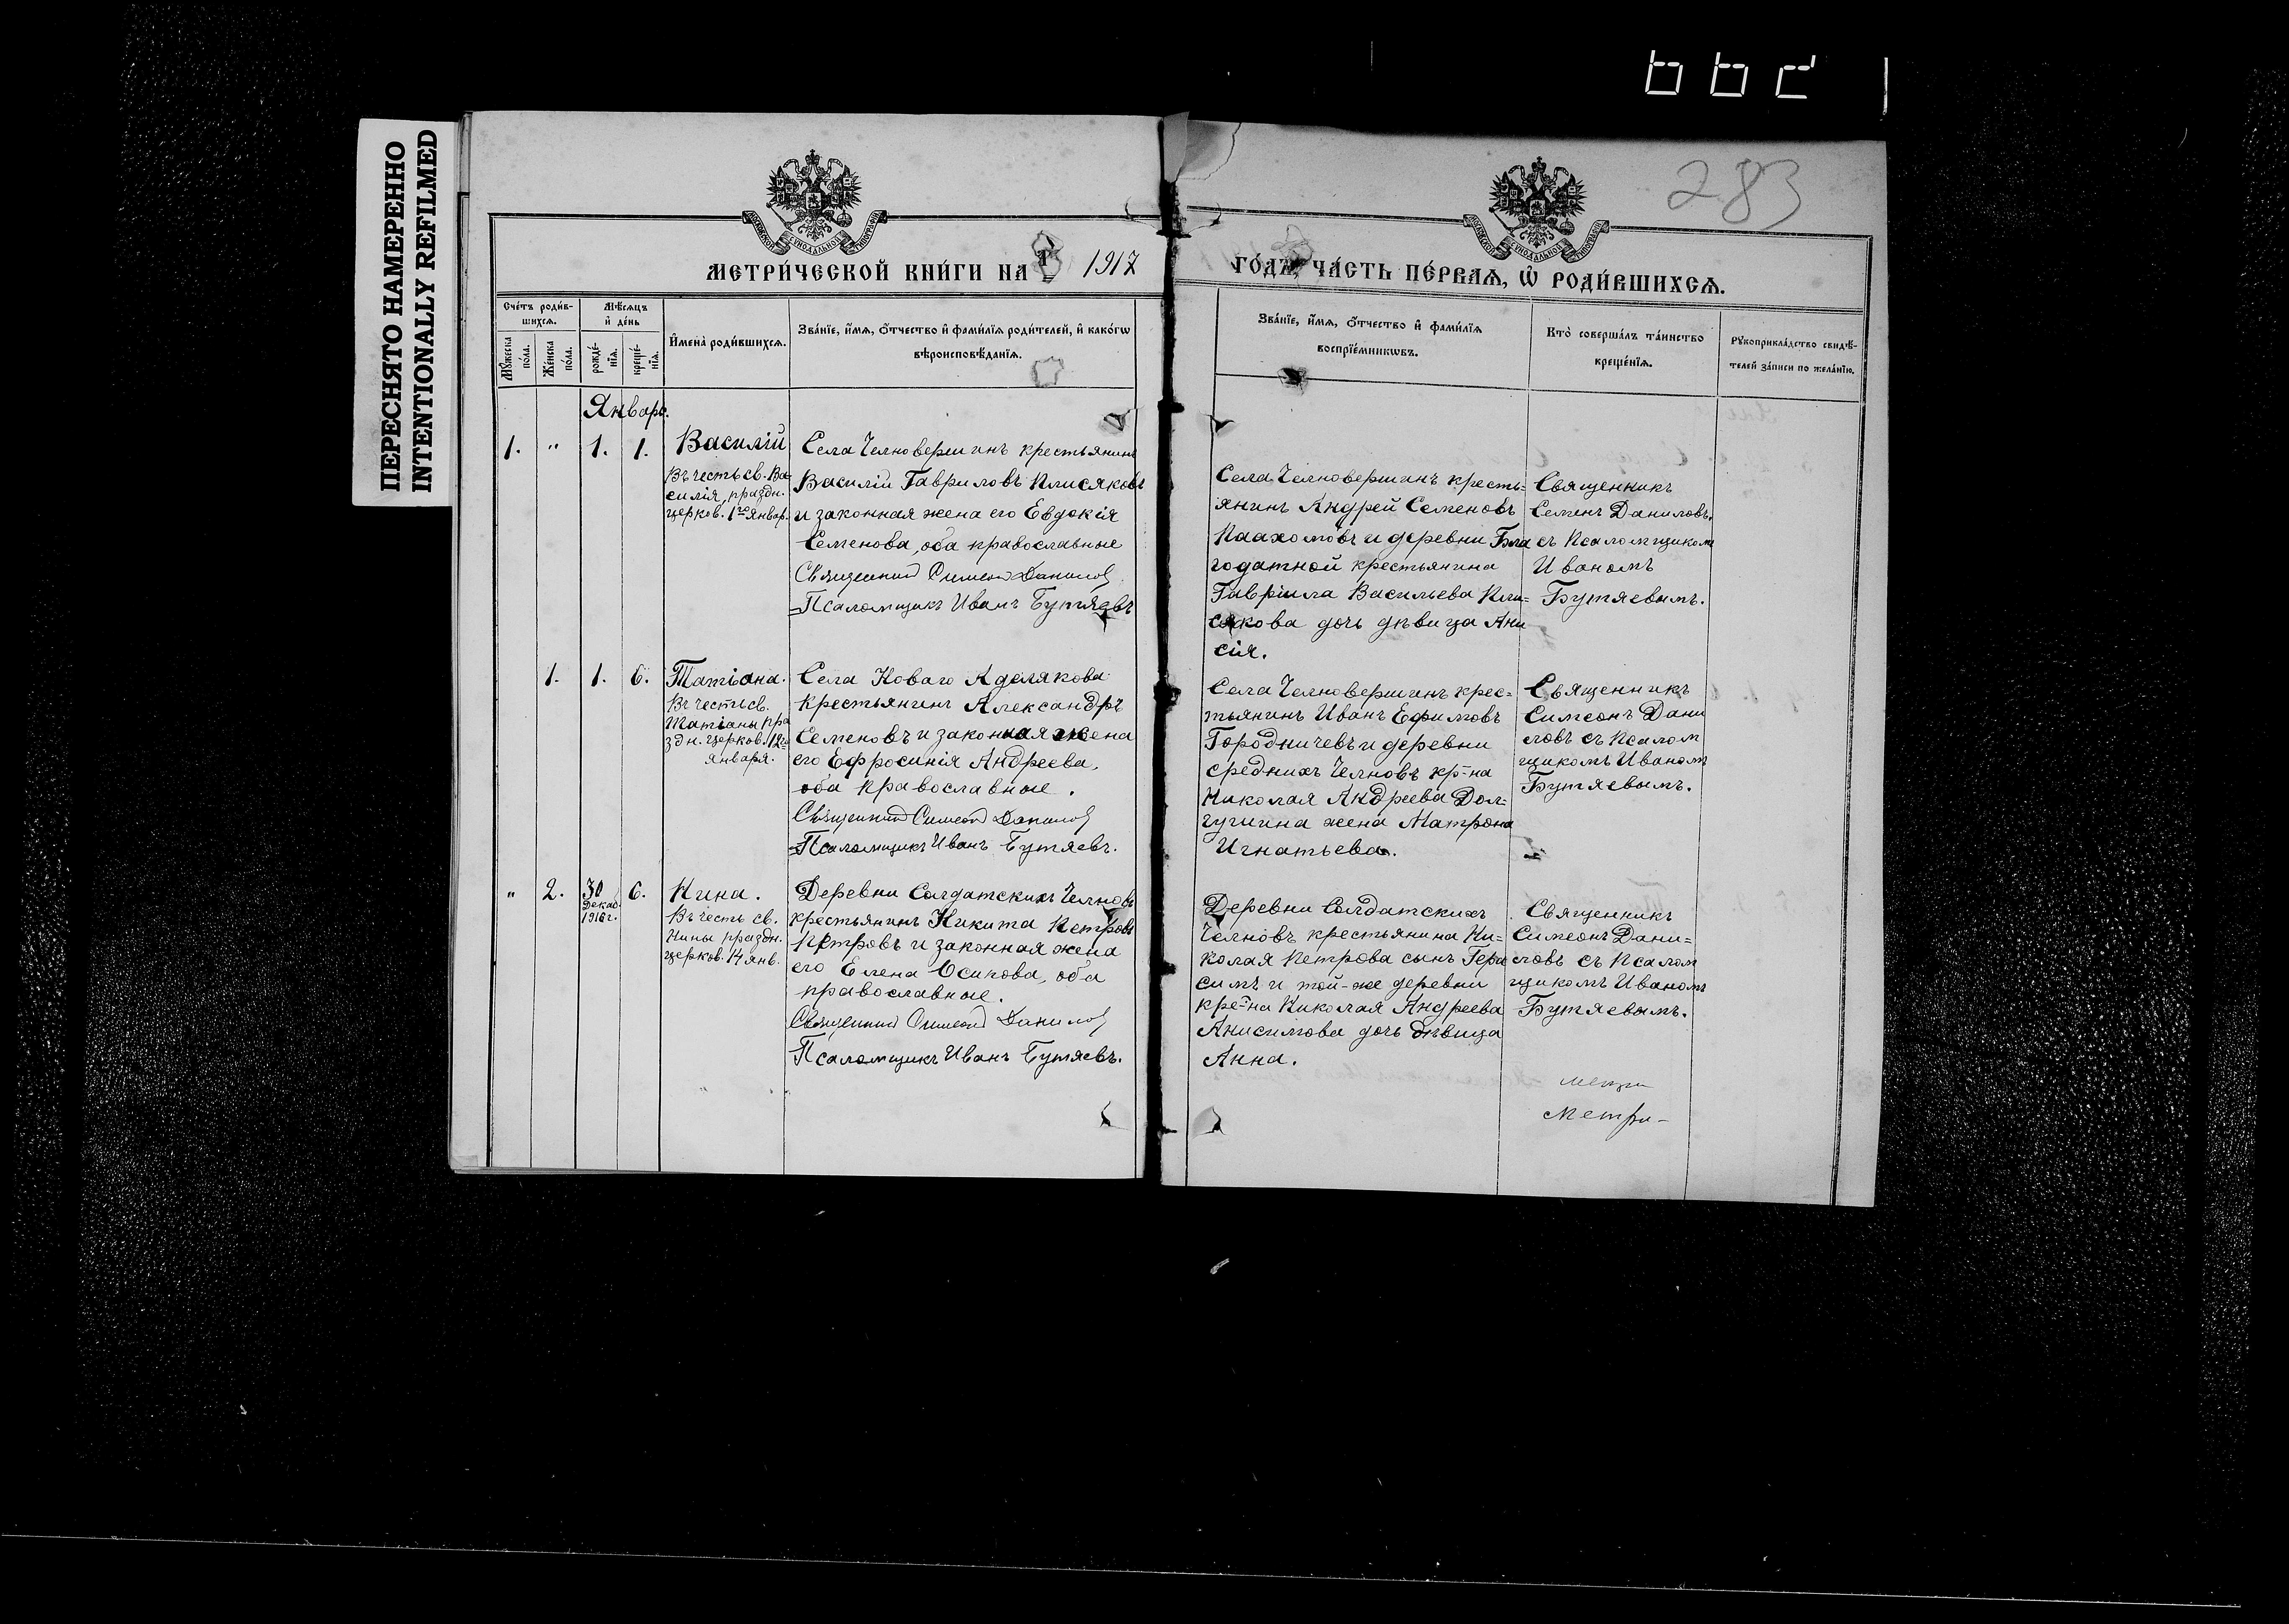 ПЕРЕСНЯТО НАМЕРЕННО
INTENTIONALLY REFILMED
283
МОСКОВСКОЙ СѴНОДАЛЬНОЙ ТИПОГРАФІИ
МОСКОВСКОЙ СѴНОДАЛЬНОЙ ТИПОГРАФІИ
МЕТРИ́ЧЕСКОЙ КНИ́ГИ НА 1917
ГО́ДА, ЧА́СТЬ ПЕ́РВАѦ, Ѡ҆ РОДИ́ВШИХСѦ.
Сче́тъ роди́в-
шихсѧ.
Мѹ́жеска
по́ла.
Же́нска
по́ла.
Мѣ́сѧцъ
и҆ де́нь
рожде́-
нїѧ.
креще́-
нїѧ.
И҆мена̀ роди́вшихсѧ.
Зва́нїе, и҆́мѧ, ѻ҆́тчество и҆ фами́лїѧ роди́телей, и҆ како́гѡ
вѣроисповѣ́данїѧ.
Зва́нїе, и҆́мѧ, ѻ҆́тчество и҆ фами́лїѧ
воспрїе́мникѡвъ.
Кто̀ соверша́лъ та́инство
креще́нїѧ.
Рѹкоприкла́дство свидѣ́-
телей за́писи по жела́нїю.
Январь.
1. " 1. 1.
Василій
Въ честь св. Ва-
силія, праздн.
церков. 1го январ.
Села Челновершинъ крестьянинъ
Василій Гавриловъ Клисяковъ
и законная жена его Евдокія
Семенова, оба православные
Священникъ Симеонъ Даниловъ
Псаломщикъ Иванъ Бутяевъ
Села Челновершинъ кресть=
янинъ Андрей Семеновъ
и деревни Бла
годатной крестьянина
Гавріила Васильева Кли=
сякова дочь дѣвица Ани
сія.
Священникъ
Семенъ Даниловъ,
съ Псаломщикомъ
Иваномъ
Бутяевымъ.
1. 1. 6.
Татіана.
Въ честь св.
Татіаны пра
здн. церков. 12го
января.
Села Новаго Аделякова
крестьянинъ Александръ
Семеновъ и законная жена
его Ефросинія Андреева,
оба православные.
Священникъ Симеонъ Даниловъ
Псаломщикъ Иванъ Бутяевъ.
Села Челновершинъ крес=
тьянинъ Иванъ Ефимовъ
Городничевъ и деревни
средникъ Челновъ кр-на
Николая Андреева Дол=
гушина жена Матрона
Игнатьева.
Священникъ
Симеонъ Дани
ловъ съ Псалом
щикомъ Иваномъ
Бутяевымъ.
" 2. 30
Декаб.
1916 г.
6.
Нина.
Въ честь св.
Нины праздн.
церков. 14 янв.
Деревни Солдатскихъ Челновъ
крестьянинъ Никита Петровъ
Петровъ и законная жена
его Елена Осипова, оба
православные.
Священникъ Симеонъ Даниловъ
Псаломщикъ Иванъ Бутяевъ.
Деревни Солдатскихъ
Челновъ крестьянина Ни=
колая Петрова сынъ Гера
симъ и той-же деревни
кре-на Николая Андреева
Анисимова дочь дѣвица
Анна.
Священникъ
Симеонъ Дани=
ловъ съ Псалом
щикомъ Иваномъ
Бутяевымъ.
метри
Метри-